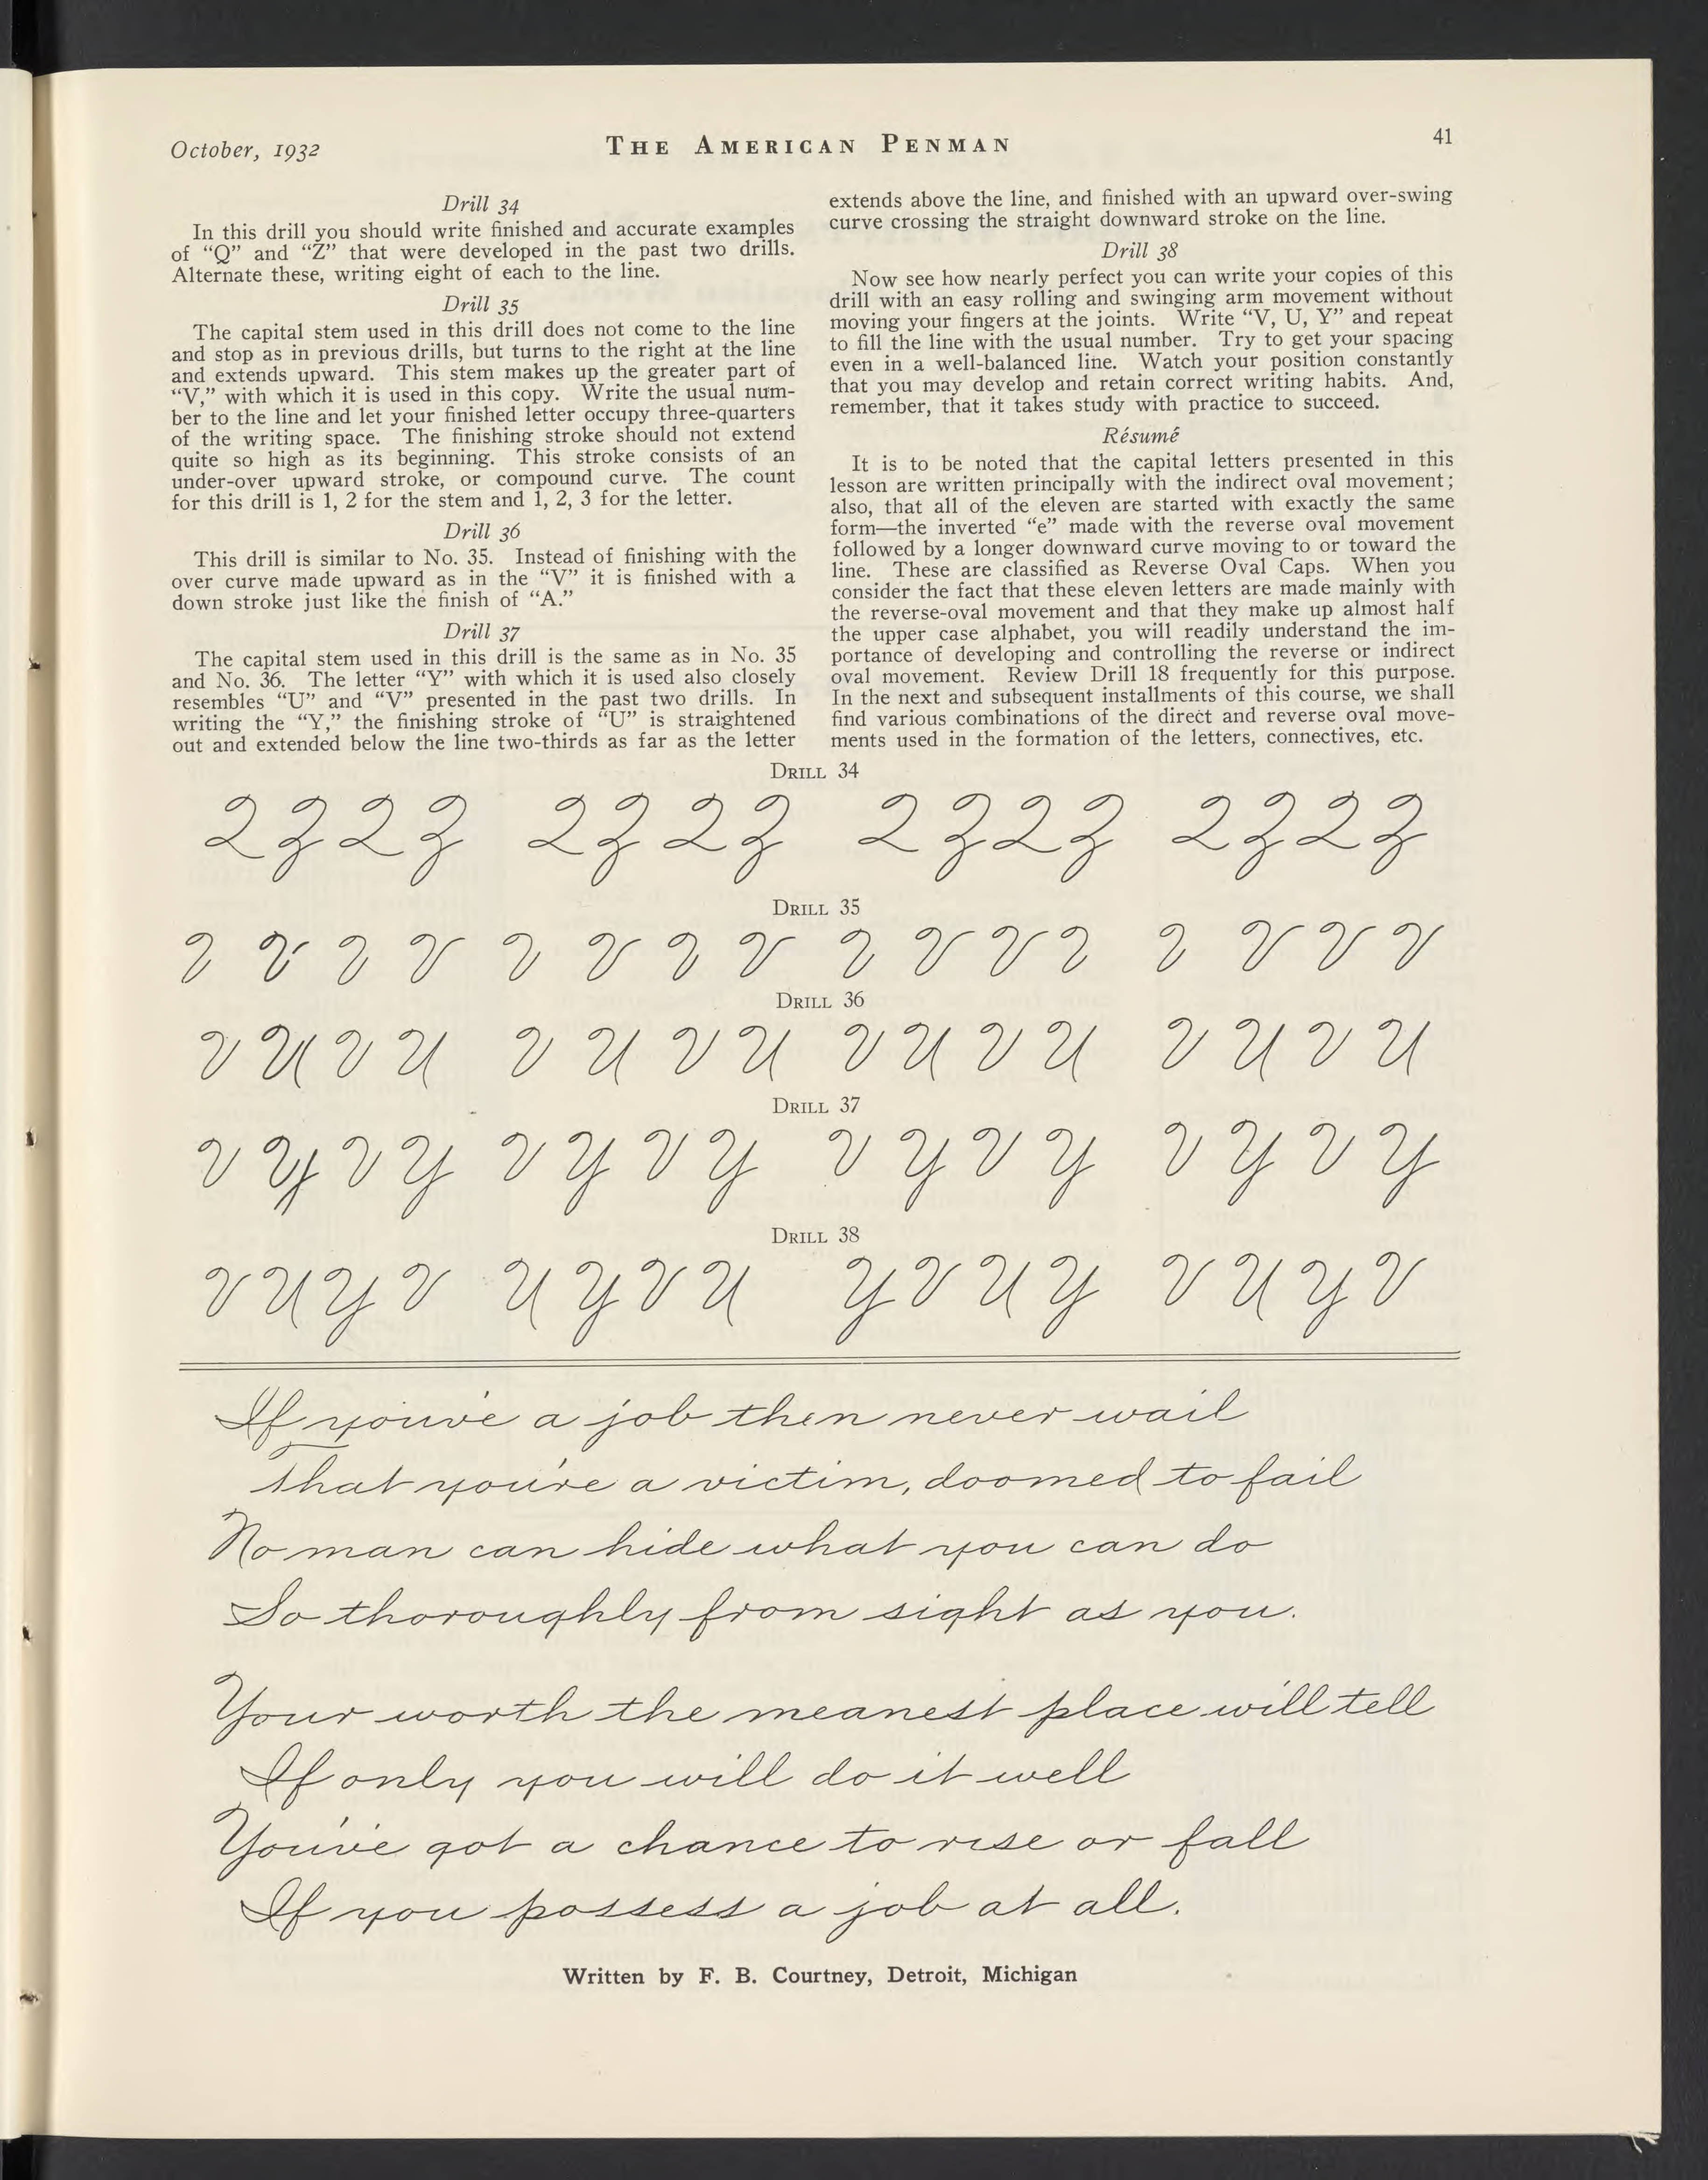 October, 1932
THE AMERICAN PENMAN
41
Drill 34
In this drill you should write finished and accurate examples
of “Q” and “Z” that were developed in the past two drills.
Alternate these, writing eight of each to the line.
Drill 35
The capital stem used in this drill does not come to the line
and stop as in previous drills, but turns to the right at the line
and extends upward. This stem makes up the greater part of
“V,” with which it is used in this copy. Write the usual num-
ber to the line and let your finished letter occupy three-quarters
of the writing space. The finishing stroke should not extend
quite so high as its beginning. This stroke consists of an
under-over upward stroke, or compound curve. The count
for this drill is 1, 2 for the stem and 1, 2, 3 for the letter.
Drill 36
This drill is similar to No. 35. Instead of finishing with the
over curve made upward as in the “V” it is finished with a
down stroke just like the finish of “A.”
Drill 37
The capital stem used in this drill is the same as in No. 35
and No. 36. The letter “Y” with which it is used also closely
resembles “U” and “V” presented in the past two drills. In
writing the “Y,” the finishing stroke of “U” is straightened
out and extended below the line two-thirds as far as the letter
extends above the line, and finished with an upward over-swing
curve crossing the straight downward stroke on the line.
Drill 38
Now see how nearly perfect you can write your copies of this
drill with an easy rolling and swinging arm movement without
moving your fingers at the joints. Write “V, U, Y” and repeat
to fill the line with the usual number. Try to get your spacing
even in a well-balanced line. Watch your position constantly
that you may develop and retain correct writing habits. And,
remember, that it takes study with practice to succeed.
Résumé
It is to be noted that the capital letters presented in this
lesson are written principally with the indirect oval movement;
also, that all of the eleven are started with exactly the same
form—the inverted “e” made with the reverse oval movement
followed by a longer downward curve moving to or toward the
line. These are classified as Reverse Oval Caps. When you
consider the fact that these eleven letters are made mainly with
the reverse-oval movement and that they make up almost half
the upper case alphabet, you will readily understand the im-
portance of developing and controlling the reverse or indirect
oval movement. Review Drill 18 frequently for this purpose.
In the next and subsequent installments of this course, we shall
find various combinations of the direct and reverse oval move-
ments used in the formation of the letters, connectives, etc.
DRILL 34
Q Z Q Z Q Z Q Z Q Z Q Z Q Z Q Z
DRILL 35
DRILL 36
DRILL 37
DRILL 38
V U Y V U Y V U Y V U Y V U Y V
If you've a job then never wail
That you're a victim, doomed to fail
No man can hide what you can do
So thoroughly from sight as you.
Your worth the meanest place will tell
If only you will do it well
You've got a chance to rise or fall
If you possess a job at all.
Written by F. B. Courtney, Detroit, Michigan